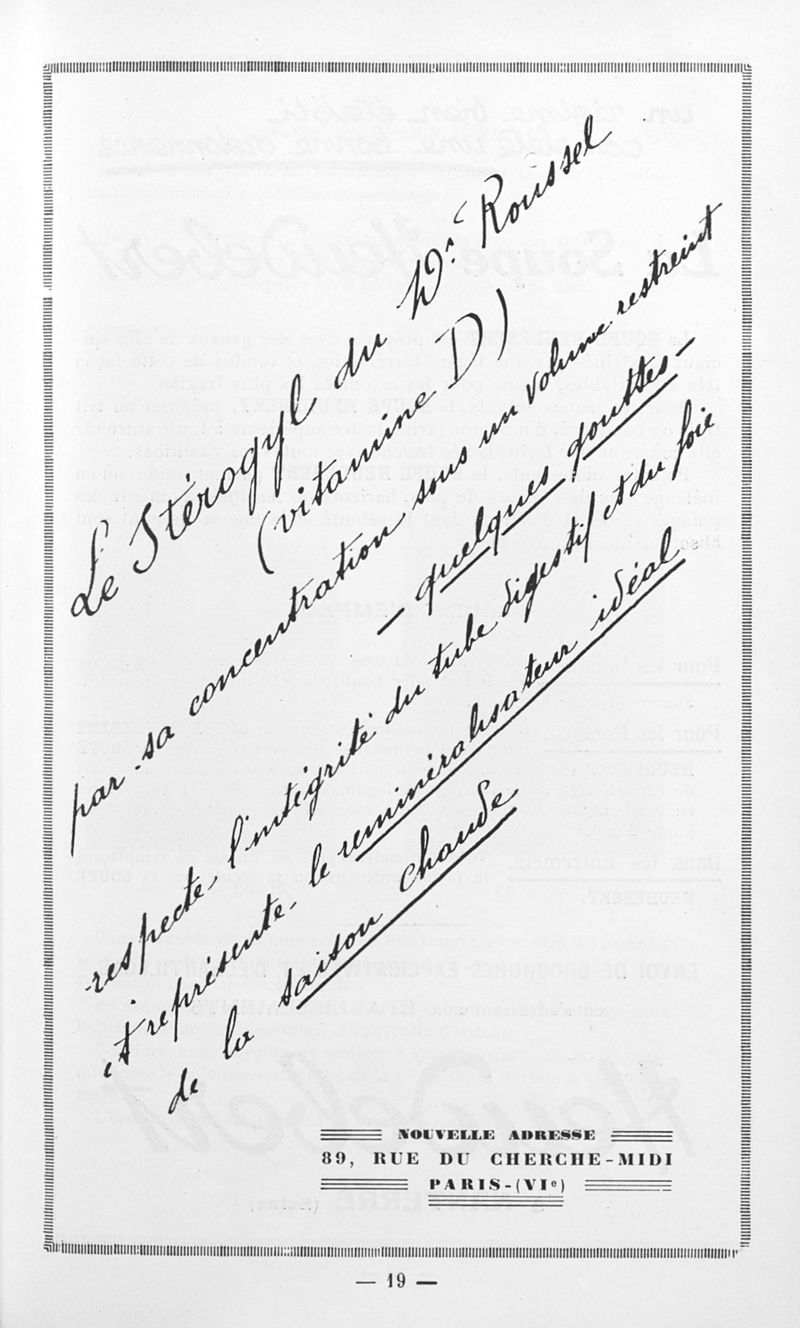 Le Stérogyl du Dr Roussel
(vitamine D)
par sa concentration sous un volume restreint
— quelques gouttes —
respecte l'intégrité du tube digestif et du foie
et représente le reminéralisateur idéal
de la saison chaude
NOUVELLE ADRESSE
89, RUE DU CHERCHE-MIDI
PARIS-(VIe)
— 19 —